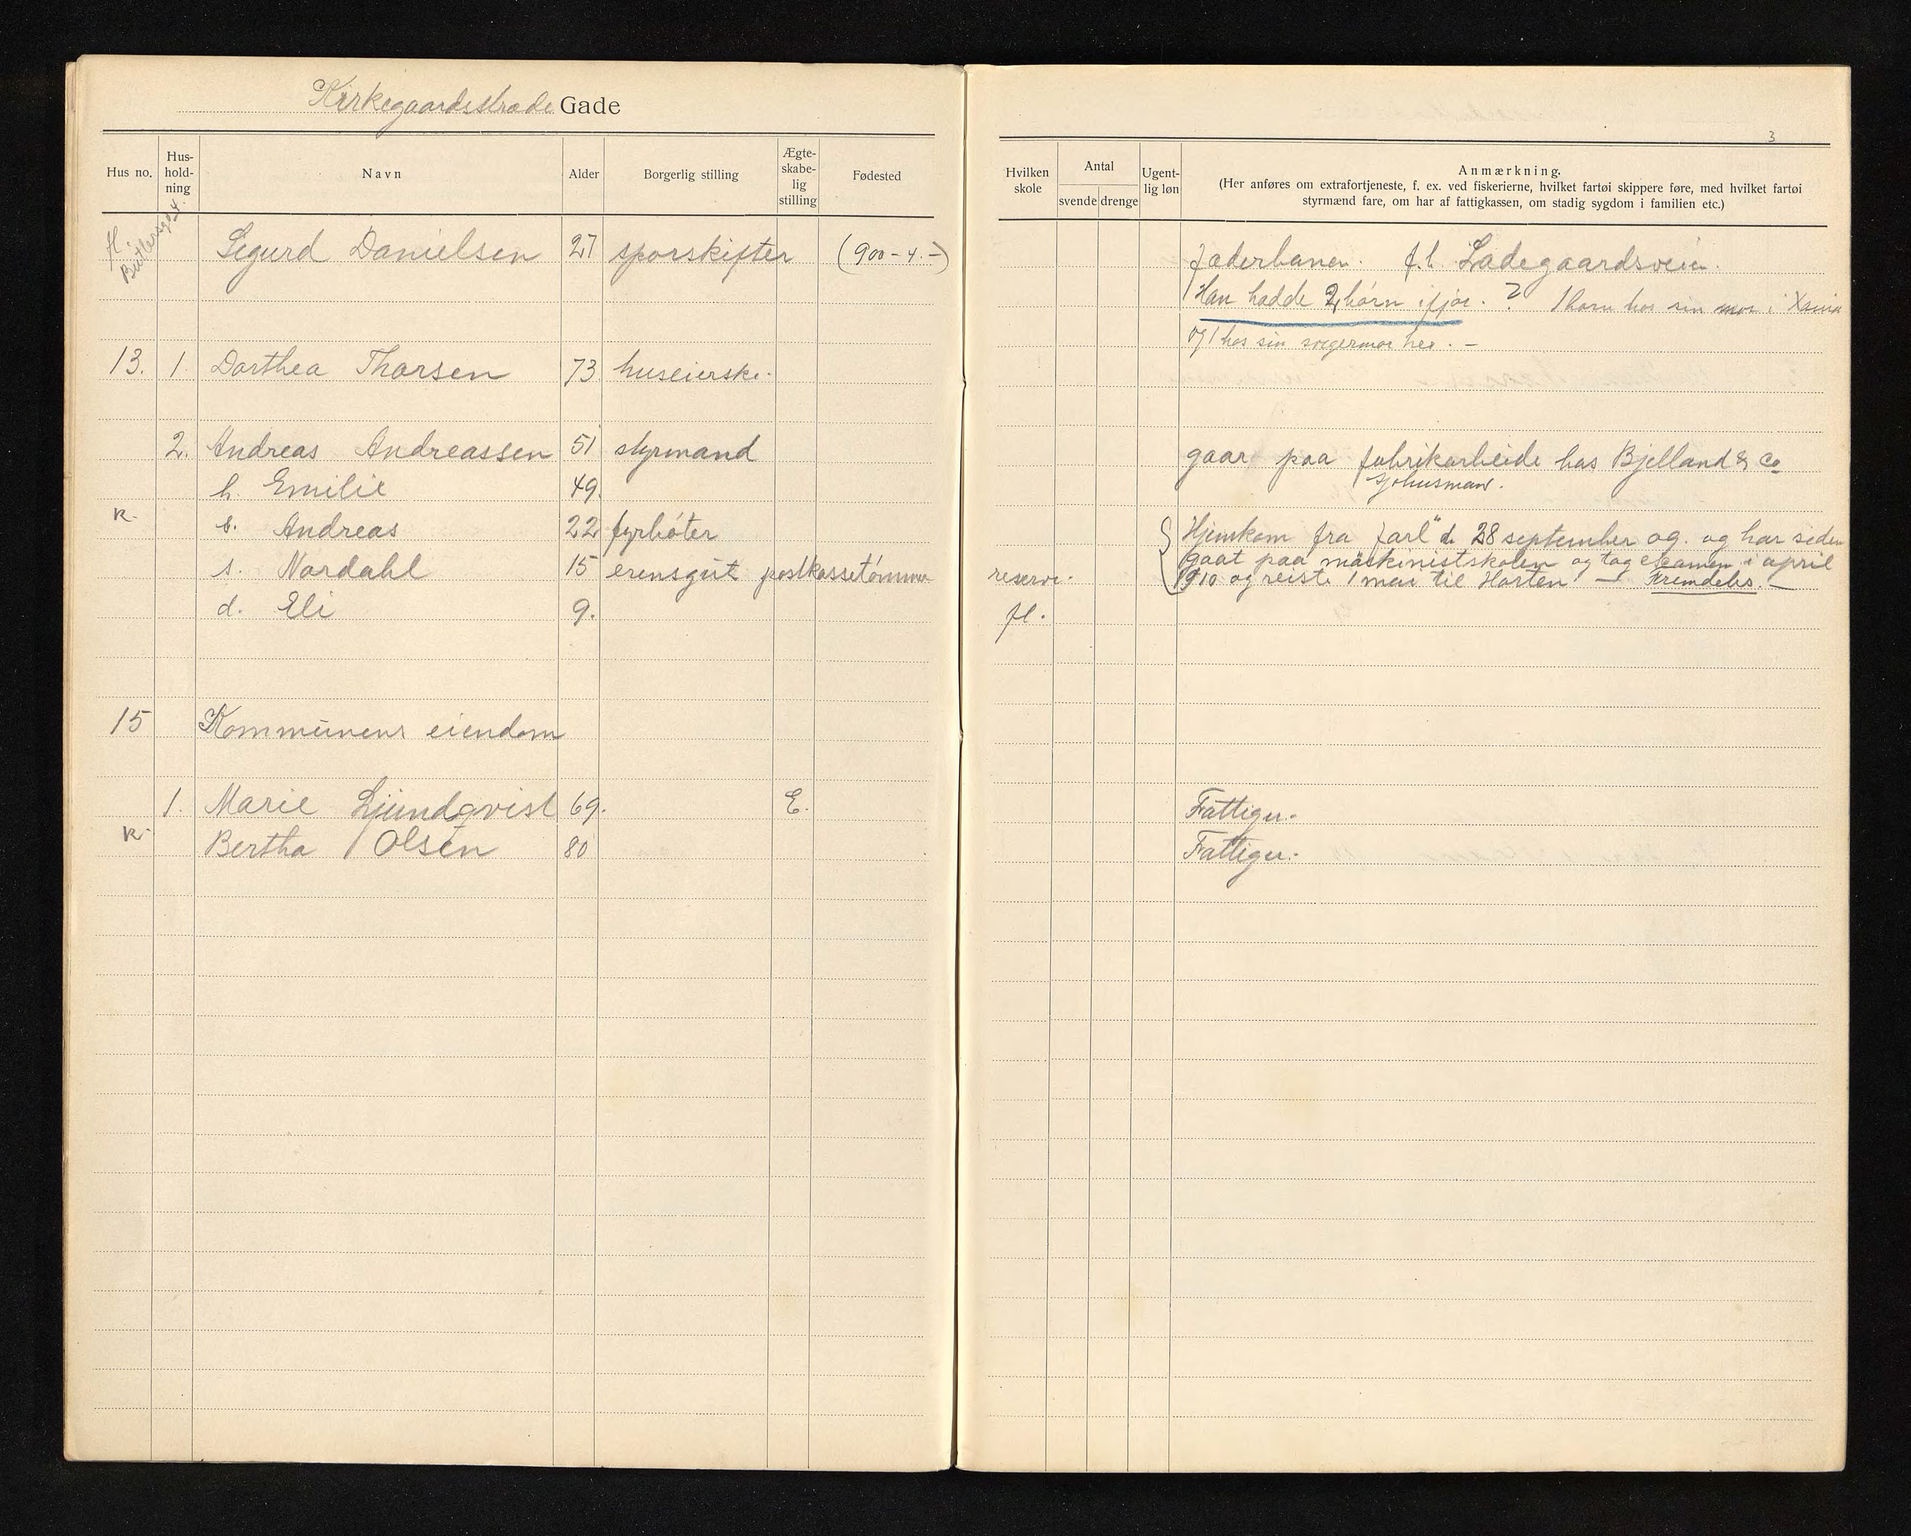 Kirkegaardsstræde Gade
3
Hus no. Hus-hold-ning Navn Alder Borgerlig stilling Ægte-skabe-lig stilling Fødested
Hvilken skole Antal svende drenge Ugent-lig løn Anmærkning.
(Her anføres om extrafortjeneste, f. ex. ved fiskerierne, hvilket fartøi skippere føre, med hvilket fartøi
styrmænd fare, om har af fattigkassen, om stadig sygdom i familien etc.)
fl. Sigurd Danielsen 27 sporskifter (900 – 4. –) Jæderbanen. f.h. Ladegaardsveien.
Han hadde 2 børn ifjor. ? 1 barn hos sin mor i Xania
og 1 hos sin svigermor her. –
13. 1. Dorthea Thorsen 73 huseierske.
2. Andreas Andreassen 51 styrmand gaar paa fabrikarbeide hos Bjelland & Co
h. Emilie 49. sjøhusmand.
R. s. Andreas 22 fyrbøter Hjemkom fra Jarl" d. 28 september og. og har siden
s. Nordahl 15 erensgut postkassetømmer reserve. gaat paa maskinistskolen og tog examen i april
1910 og reiste 1 mai til Horten – Fremdeles. –
d. Eli 9. fl.
15 Kommunens eiendom
1. Marie Ljundqvist 69. E. Fattiger.
R. Bertha Olsen 80 Fattiger.